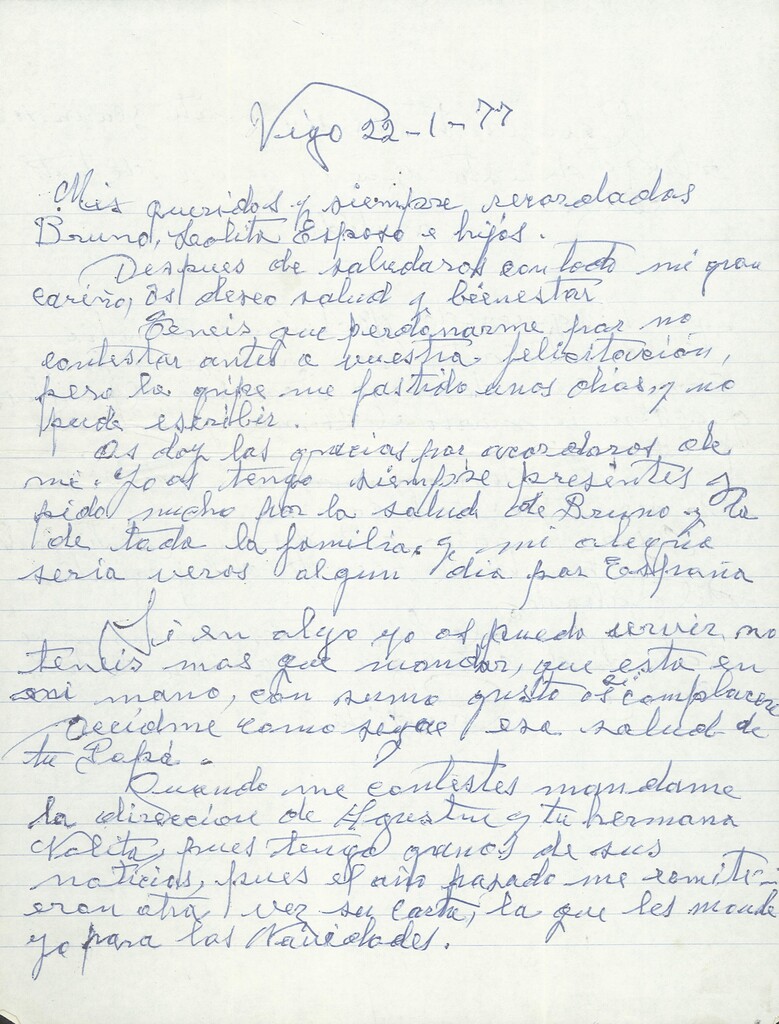 Vigo 22-1-77
Mis queridos y siempre recordadas
Bruno, Lolita Esposo e hijos.
Despues de saludaros con todo mi gran
cariño, os deseo salud y bienestar
Teneis que perdonarme por no
contestar antes a vuestra felicitación,
pero la gripe me fastido unos dias, y no
pude escribir.
Os doy las gracias por acordaros de
mi. Yo os tengo siempre presentes y
pido mucho por la salud de Bruno y la
de toda la familia, y mi alegria
seria veros algun dia por España
Si en algo yo os puedo servir no
teneis mas que mandar, que esta en
mi mano, con sumo gusto os complacere
Decidme como sigue esa salud de
tu Papá.
Cuando me contestes mandame
la direccion de Agustin y tu hermana
Nolita, pues tengo ganas de sus
noticias, pues el año pasado me remiti-
eron otra vez su carta, la que les mande
yo para las Navidades.